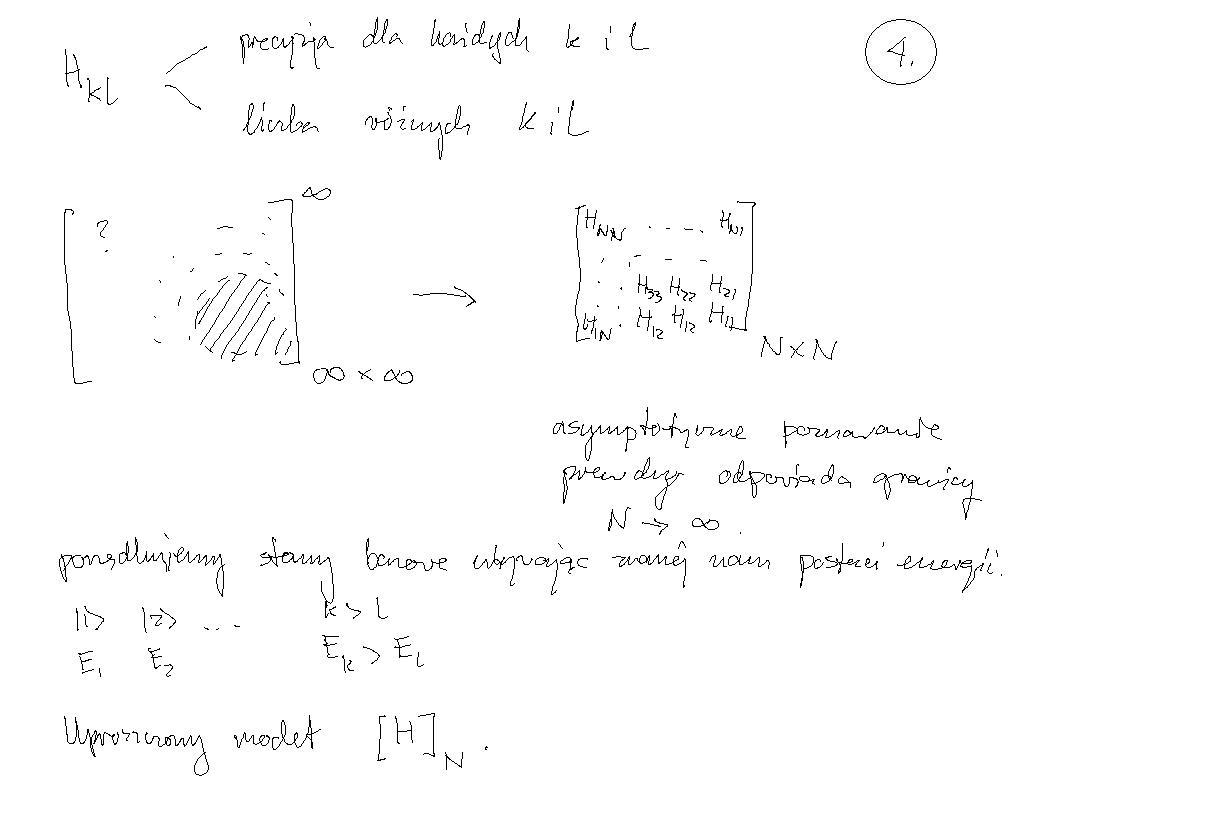 4.
H_{kl} < precyzja dla każdych k i l
liczba różnych k i l
[ ? ]_{∞ × ∞} ∞ →
H_{NN} . - - - . H_{N1}
H_{33} H_{22} H_{21}
H_{1N} : H_{12} H_{12} H_{11}
N × N
asymptotyczne poznawanie
prawdy odpowiada granicy
N → ∞ .
porządkujemy stany bazowe używając znanej nam postaci energii.
|1> |2> ... k > l
E_1 E_2 E_k > E_l
Uproszczony model [H]_N .